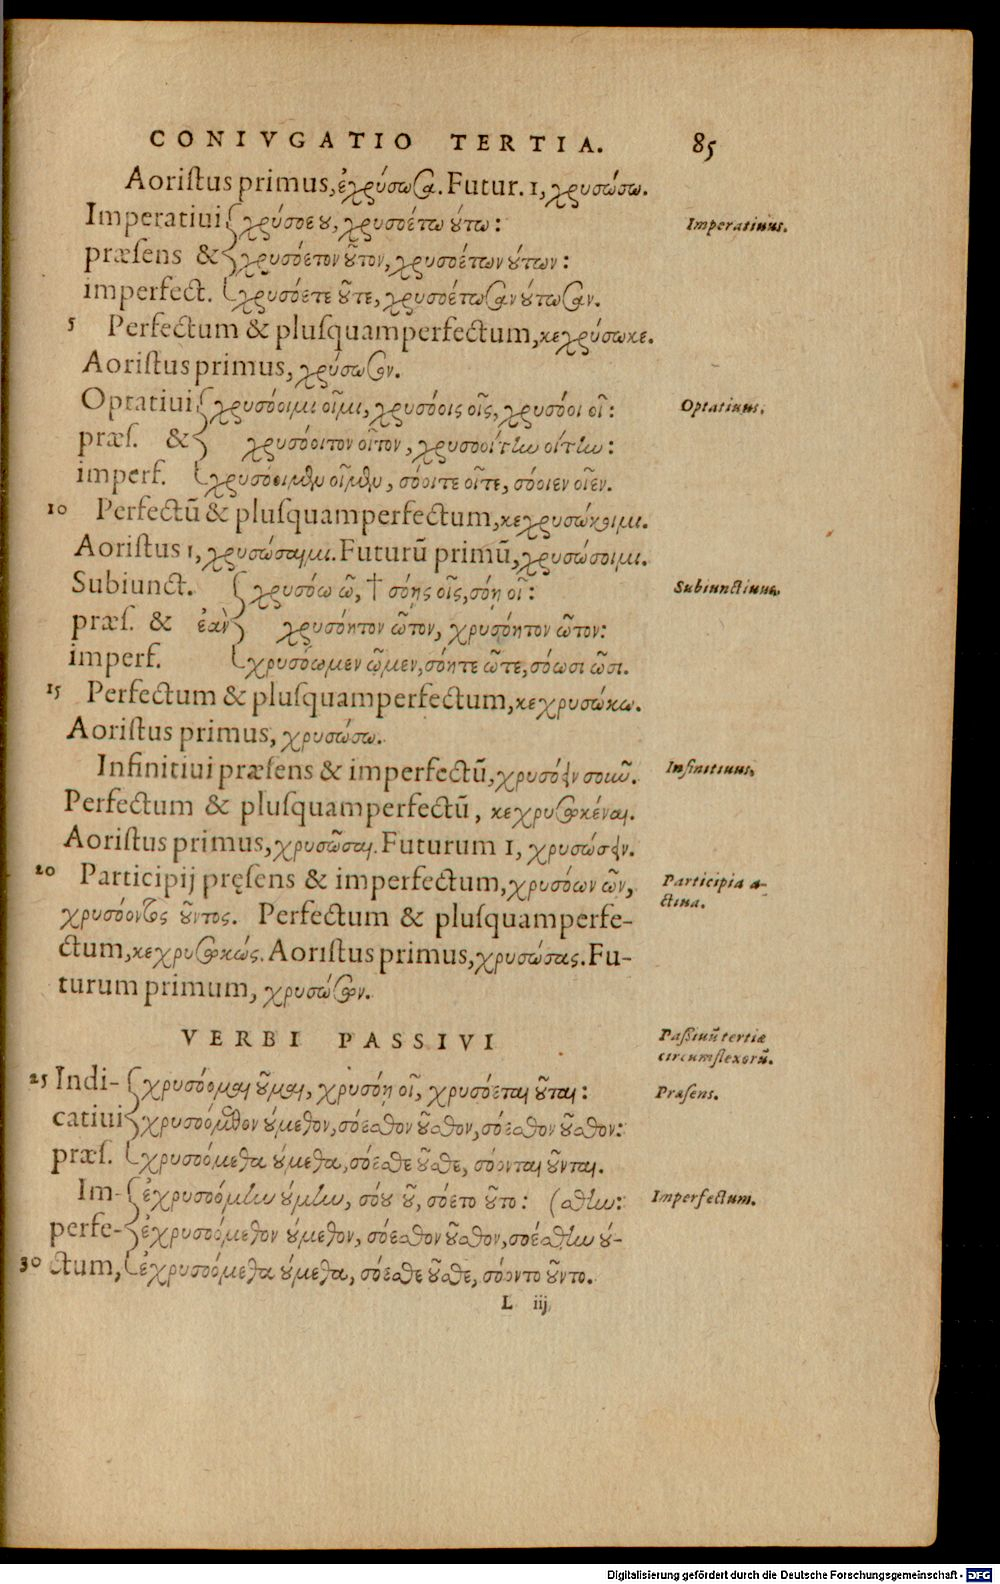 CONIVGATIO TERTIA. 85
Aoristus primus, ἐχρύσωσα. Futur. 1, χρυσώσω.
Imperatiui χρύσοε ου, χρυσοέτω ούτω: Imperatiuus.
præsens & χρυσόετον οῦτον, χρυσοέτων ούτων:
imperfect. χρυσόετε οῦτε, χρυσοέτωσαν ούτωσαν.
5 Perfectum & plusquamperfectum, κεχρύσωκε.
Aoristus primus, χρύσωσον.
Optatiui χρυσόοιμι οῖμι, χρυσόοις οῖς, χρυσόοι οῖ: Optatiuus.
præs. & χρυσόοιτον οῖτον, χρυσοοίτην οίτην:
imperf. χρυσόοιμεν οῖμεν, σόοιτε οῖτε, σόοιεν οῖεν.
10 Perfectū & plusquamperfectum, κεχρυσώκοιμι.
Aoristus 1, χρυσώσαιμι. Futurū primū, χρυσώσοιμι.
Subiunct. χρυσόω ῶ, † σόῃς οῖς, σόῃ οῖ: Subiunctiuus.
præs. & ἐὰν χρυσόητον ῶτον, χρυσόητον ῶτον:
imperf. χρυσόωμεν ῶμεν, σόητε ῶτε, σόωσι ῶσι.
15 Perfectum & plusquamperfectum, κεχρυσώκω.
Aoristus primus, χρυσώσω.
Infinitiui præsens & imperfectū, χρυσόειν σοιῦν. Infinitiuus.
Perfectum & plusquamperfectū, κεχρυσωκέναι.
Aoristus primus, χρυσῶσαι. Futurum 1, χρυσώσειν.
20 Participij pręsens & imperfectum, χρυσόων ῶν, Participia a-
χρυσόοντος οῦντος. Perfectum & plusquamperfe- ctiua.
ctum, κεχρυσωκώς. Aoristus primus, χρυσώσας. Fu-
turum primum, χρυσώσων.
VERBI PASSIVI Passiuū tertiæ
circumflexorū.
25 Indi- χρυσόομαι οῦμαι, χρυσόῃ οῖ, χρυσόεται οῦται: Præsens.
catiui χρυσοόμεθον ούμεθον, σόεσθον οῦσθον, σόεσθον οῦσθον:
præs. χρυσοόμεθα ούμεθα, σόεσθε οῦσθε, σόονται οῦνται.
Im- ἐχρυσοόμην ούμην, σόου οῦ, σόετο οῦτο: (σθην: Imperfectum.
perfe- ἐχρυσοόμεθον ούμεθον, σόεσθον οῦσθον, σοέσθην ού-
30 ctum, ἐχρυσοόμεθα ούμεθα, σόεσθε οῦσθε, σόοντο οῦντο.
L iij
Digitalisierung gefördert durch die Deutsche Forschungsgemeinschaft - DFG